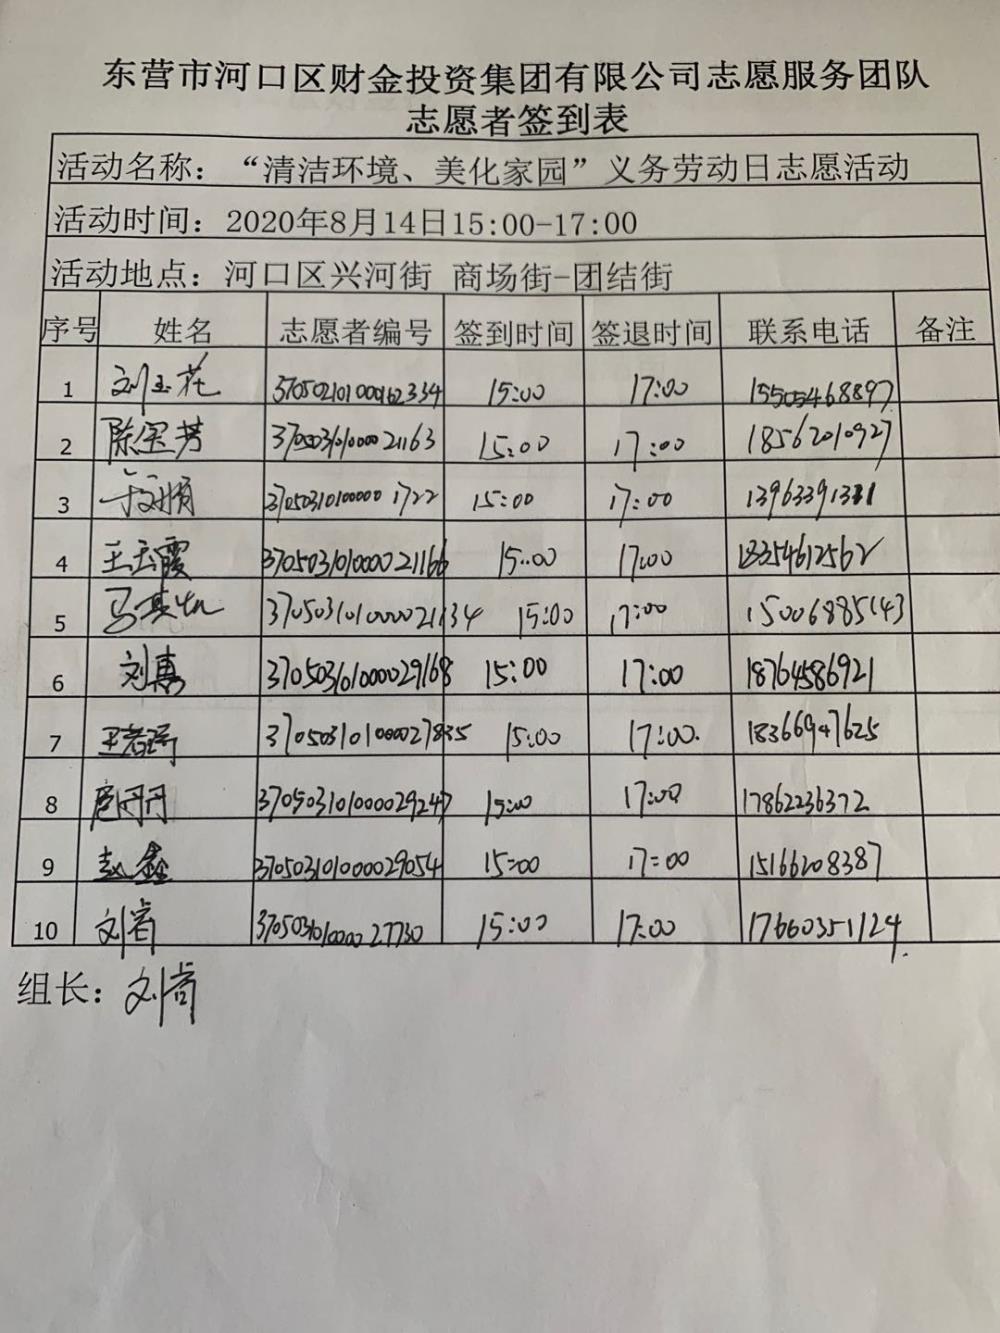 东营市河口区财金投资集团有限公司志愿服务团队
志愿者签到表
活动名称：“清洁环境、美化家园”义务劳动日志愿活动
活动时间：2020年8月14日15:00-17:00
活动地点：河口区兴河街 商场街-团结街
序号 姓名 志愿者编号 签到时间 签退时间 联系电话 备注
1 刘玉花 370502101000162334 15:00 17:00 15505468897
2 陈宝芳 370503101000021163 15:00 17:00 18562010927
3 370503101000001722 15:00 17:00
4 王玉霞 370503101000021166 15:00 17:00 18354612562
5 370503101000021134 15:00 17:00 15006885143
6 刘真 370503101000029168 15:00 17:00 18764586921
7 15:00 17:00. 18366947625
8 370503101000029247 15:00 17:00 17862236372
9 赵鑫 370503101000029054 15:00 17:00 15166208387
10 刘睿 370503101000027730 15:00 17:00 17660351124
组长：刘睿